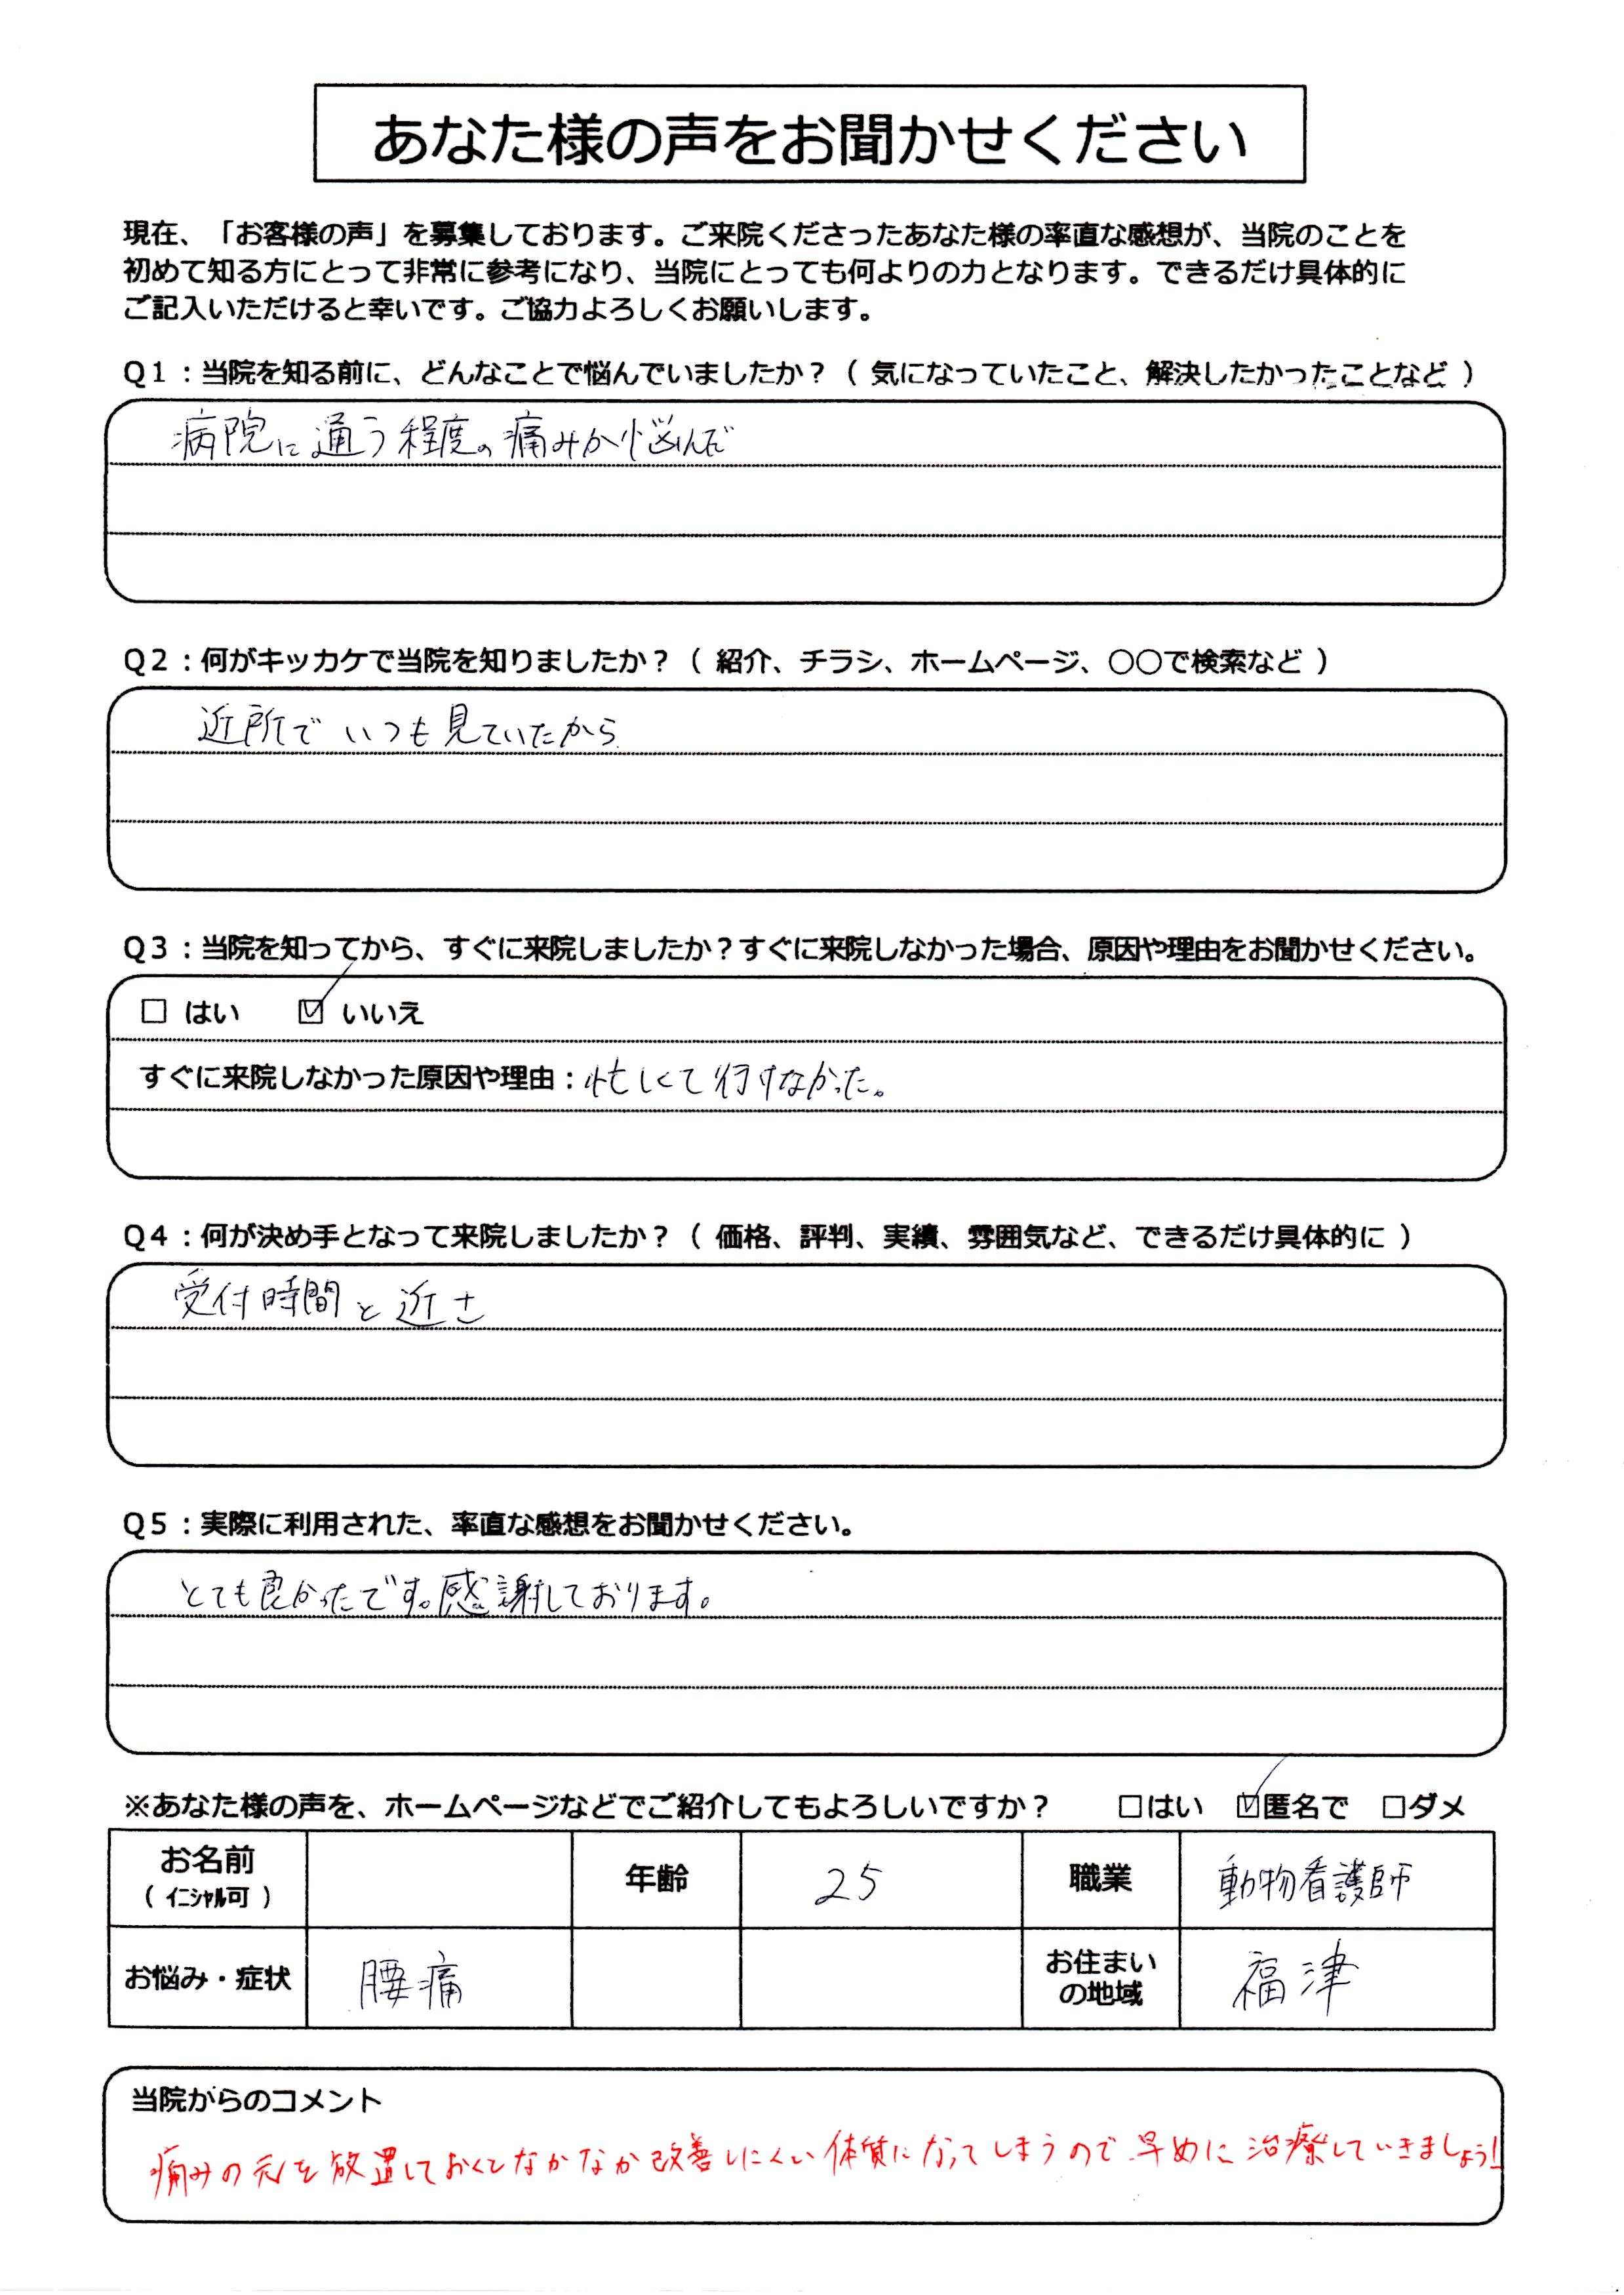 あなた様の声をお聞かせください
現在、「お客様の声」を募集しております。ご来院くださったあなた様の率直な感想が、当院のことを
初めて知る方にとって非常に参考になり、当院にとっても何よりの力となります。できるだけ具体的に
ご記入いただけると幸いです。ご協力よろしくお願いします。
Q1：当院を知る前に、どんなことで悩んでいましたか？（ 気になっていたこと、解決したかったことなど ）
病院に通う程度の痛みか悩んだ
Q2：何がキッカケで当院を知りましたか？（ 紹介、チラシ、ホームページ、○○で検索など ）
近所でいつも見ていたから
Q3：当院を知ってから、すぐに来院しましたか？すぐに来院しなかった場合、原因や理由をお聞かせください。
□ はい ☑ いいえ
すぐに来院しなかった原因や理由：忙しくて行けなかった。
Q4：何が決め手となって来院しましたか？（ 価格、評判、実績、雰囲気など、できるだけ具体的に ）
受付時間と近さ
Q5：実際に利用された、率直な感想をお聞かせください。
とても良かったです。感謝しております。
※あなた様の声を、ホームページなどでご紹介してもよろしいですか？ □はい ☑匿名で □ダメ
お名前 年齢 25 職業 動物看護師
（ ｲﾆｼｬﾙ可 ）
お悩み・症状 腰痛 お住まい 福津
の地域
当院からのコメント
痛みの元を放置しておくとなかなか改善しにくい体質になってしまうので早めに治療していきましょう！